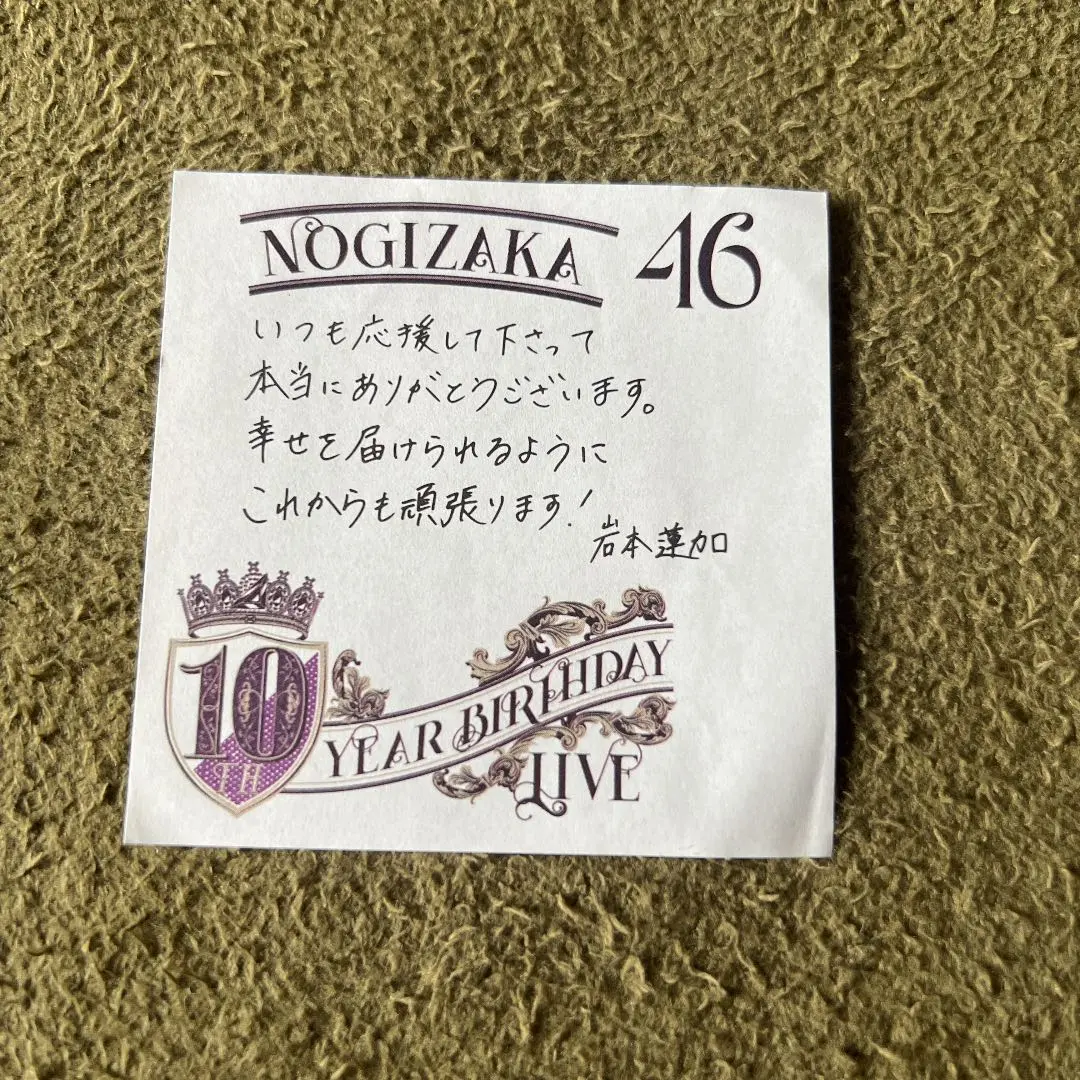 NOGIZAKA 46
いつも応援して下さって
本当にありがとうございます。
幸せを届けられるように
これからも頑張ります!
岩本蓮加
10
TH
YEAR BIRTHDAY
LIVE